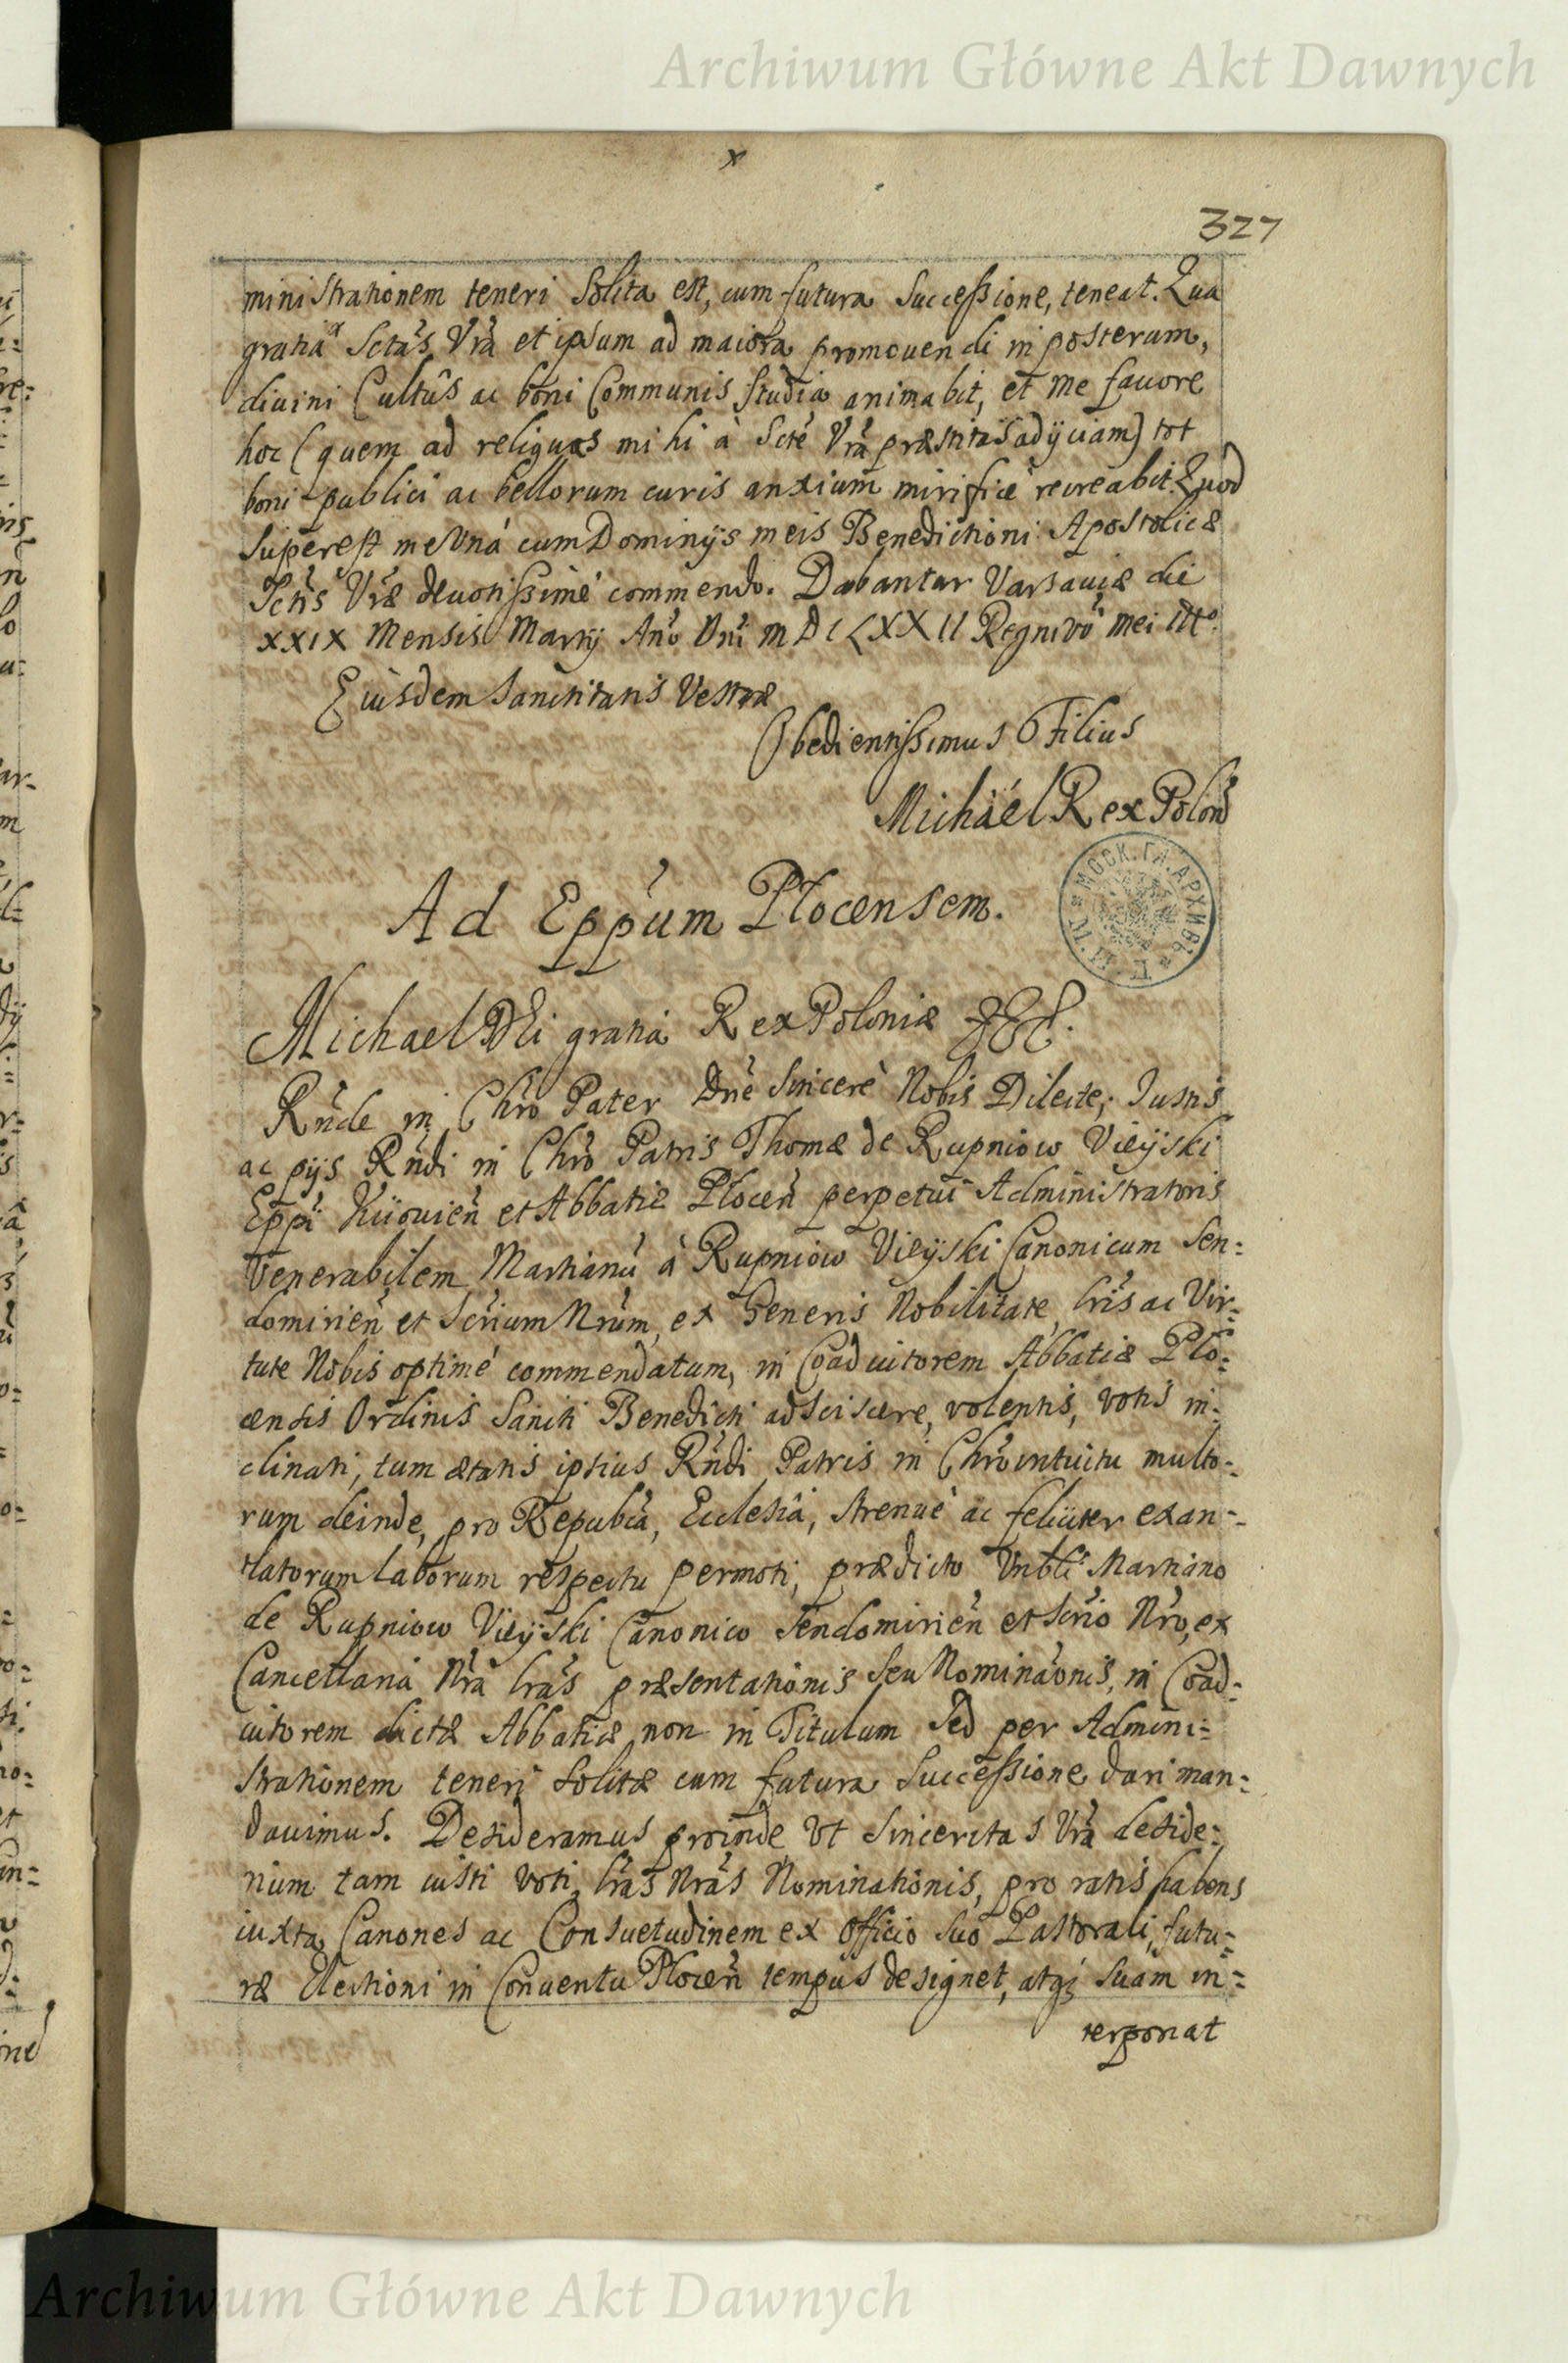 Archiwum Główne Akt Dawnych
x
327
ministrationem teneri solita est, cum futura Successione, teneat. Qua
gratia Sctas Vrã et ipsum ad maiora promouendi in posterum,
diuini Cultûs ac boni Communis studia animabit, et me fauore
hoc (quem ad reliquos mihi à Scte Vrã præstitos adijciam) tot
boni publici ac bellorum curis anxium mirificè recreabit. Quod
superest me Vná cum Dominijs meis Benedictioni Apostolicæ
Sctis Vræ deuotissimè commendo. Dabantur Varsauiæ die
XXIX Mensis Martij Año Dni MDCLXXII Regni vo mei
Eiusdem Sanctitatis Vestræ
Obedientissimus Filius
Michäel Rex Polon
Ad Eppum Plocensem.
Michael DEi gratiá Rex Poloniæ
Rñde in Chro Pater Dne Sincerè Nobis Dilecte; Iustis
ac pijs Rñdi in Chro Patris Thomæ de Rupniow Vieÿski
Eppi Kiiouieñ et Abbatiæ Ploceñ perpetui Administratoris
Venerabilem Martianũ à Rupniow Vieÿski Canonicum Sen:
domirieñ et Scrium Nrum, ex Generis Nobilitate, lris ac Vir:
tute Nobis optimé commendatum, in Coadiutorem Abbatiæ Plo:
censis Ordinis Sancti Benedicti adsciscere, volentis, votis in:
clinati, tum ætatis ipsius Rñdi Patris in Chro intuitu multo:
rum deinde, pro Republca, Ecclesiâ, strenuè ac feliciter exan:
tlatorum laborum respectu permoti, prædicto Vnbli Martiano
de Rupniow Vieÿski Canonico Sendomirieñ et Scrio Nro, ex
Cancellariá Nrã lras præsentationis seu Nominaonis, in Coad:
iutorem dictæ Abbatiæ non in Titulum Sed per Admini:
strationem teneri solitæ cum futura Successione dari man:
dauimus. Desideramus proinde, vt Sinceritas Vrã deside:
rium tam iusti voti, lras Nras Nominationis, pro ratis habens
iuxta Canones ac Consuetudinem ex Officio suo Pastorali, futu:
ræ Electioni in Conuentu Ploceñ tempus designet, atqȝ suam in:
terponat
МОСК. ГЛ. АРХИВЪ
Archiwum Główne Akt Dawnych